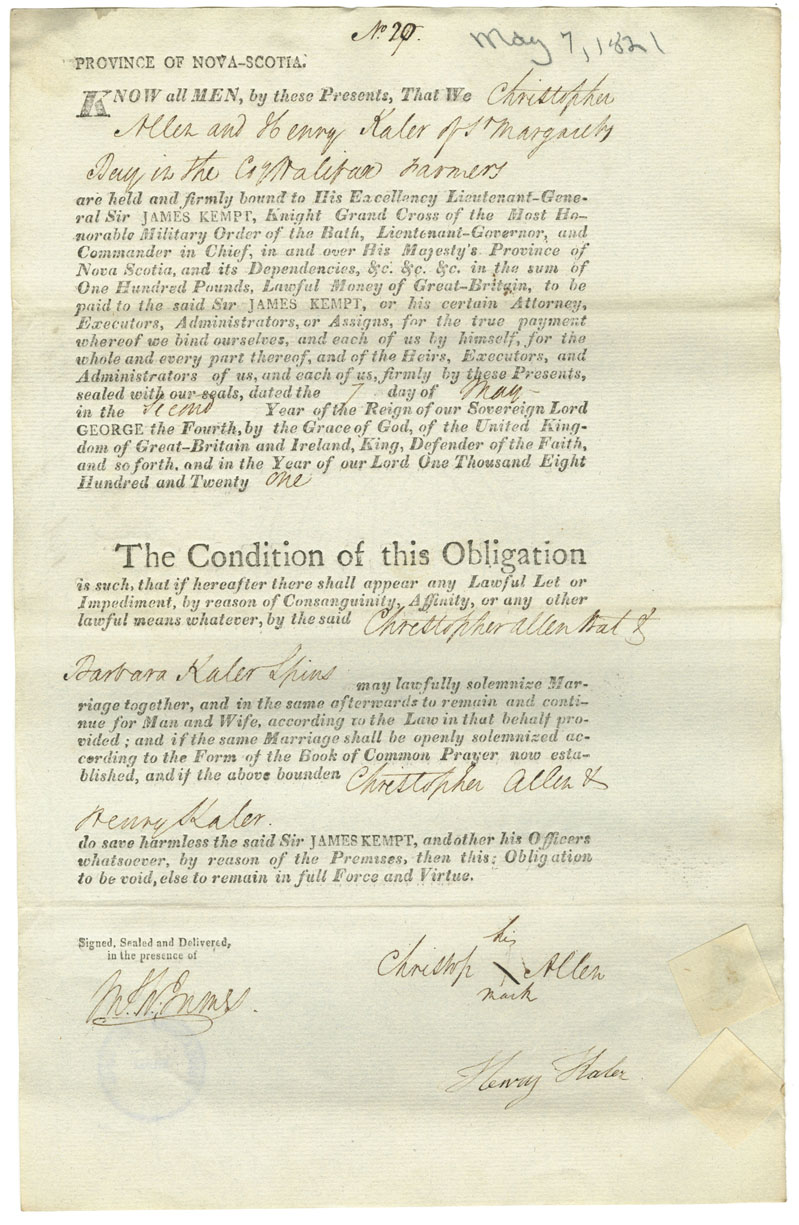 No. 29.
May 7, 1821
PROVINCE OF NOVA-SCOTIA.
KNOW all MEN, by these Presents, That We Christopher
Allen and Henry Kaler of St Margarets
Bay in the Coy Halifax Farmers
are held and firmly bound to His Excellency Lieutenant-Gene-
ral Sir JAMES KEMPT, Knight Grand Cross of the Most Ho-
norable Military Order of the Bath, Lieutenant-Governor, and
Commander in Chief, in and over His Majesty's Province of
Nova Scotia, and its Dependencies, &c. &c. &c. in the sum of
One Hundred Pounds, Lawful Money of Great-Britain, to be
paid to the said Sir JAMES KEMPT, or his certain Attorney,
Executors, Administrators, or Assigns, for the true payment
whereof we bind ourselves, and each of us by himself, for the
whole and every part thereof, and of the Heirs, Executors, and
Administrators of us, and each of us, firmly by these Presents,
sealed with our seals, dated the 7 day of May
in the Second Year of the Reign of our Sovereign Lord
GEORGE the Fourth, by the Grace of God, of the United King-
dom of Great-Britain and Ireland, King, Defender of the Faith,
and so forth, and in the Year of our Lord One Thousand Eight
Hundred and Twenty one
The Condition of this Obligation
is such, that if hereafter there shall appear any Lawful Let or
Impediment, by reason of Consanguinity, Affinity, or any other
lawful means whatever, by the said Christopher Allen Bat &
Barbara Kaler Spins
may lawfully solemnize Mar-
riage together, and in the same afterwards to remain and conti-
nue for Man and Wife, according to the Law in that behalf pro-
vided; and if the same Marriage shall be openly solemnized ac-
cording to the Form of the Book of Common Prayer now esta-
blished, and if the above bounden Christopher Allen &
Henry Kaler.
do save harmless the said Sir JAMES KEMPT, and other his Officers
whatsoever, by reason of the Premises, then this; Obligation
to be void, else to remain in full Force and Virtue.
Signed, Sealed and Delivered,
in the presence of
his
Christop X Allen
mark
Henry Kaler